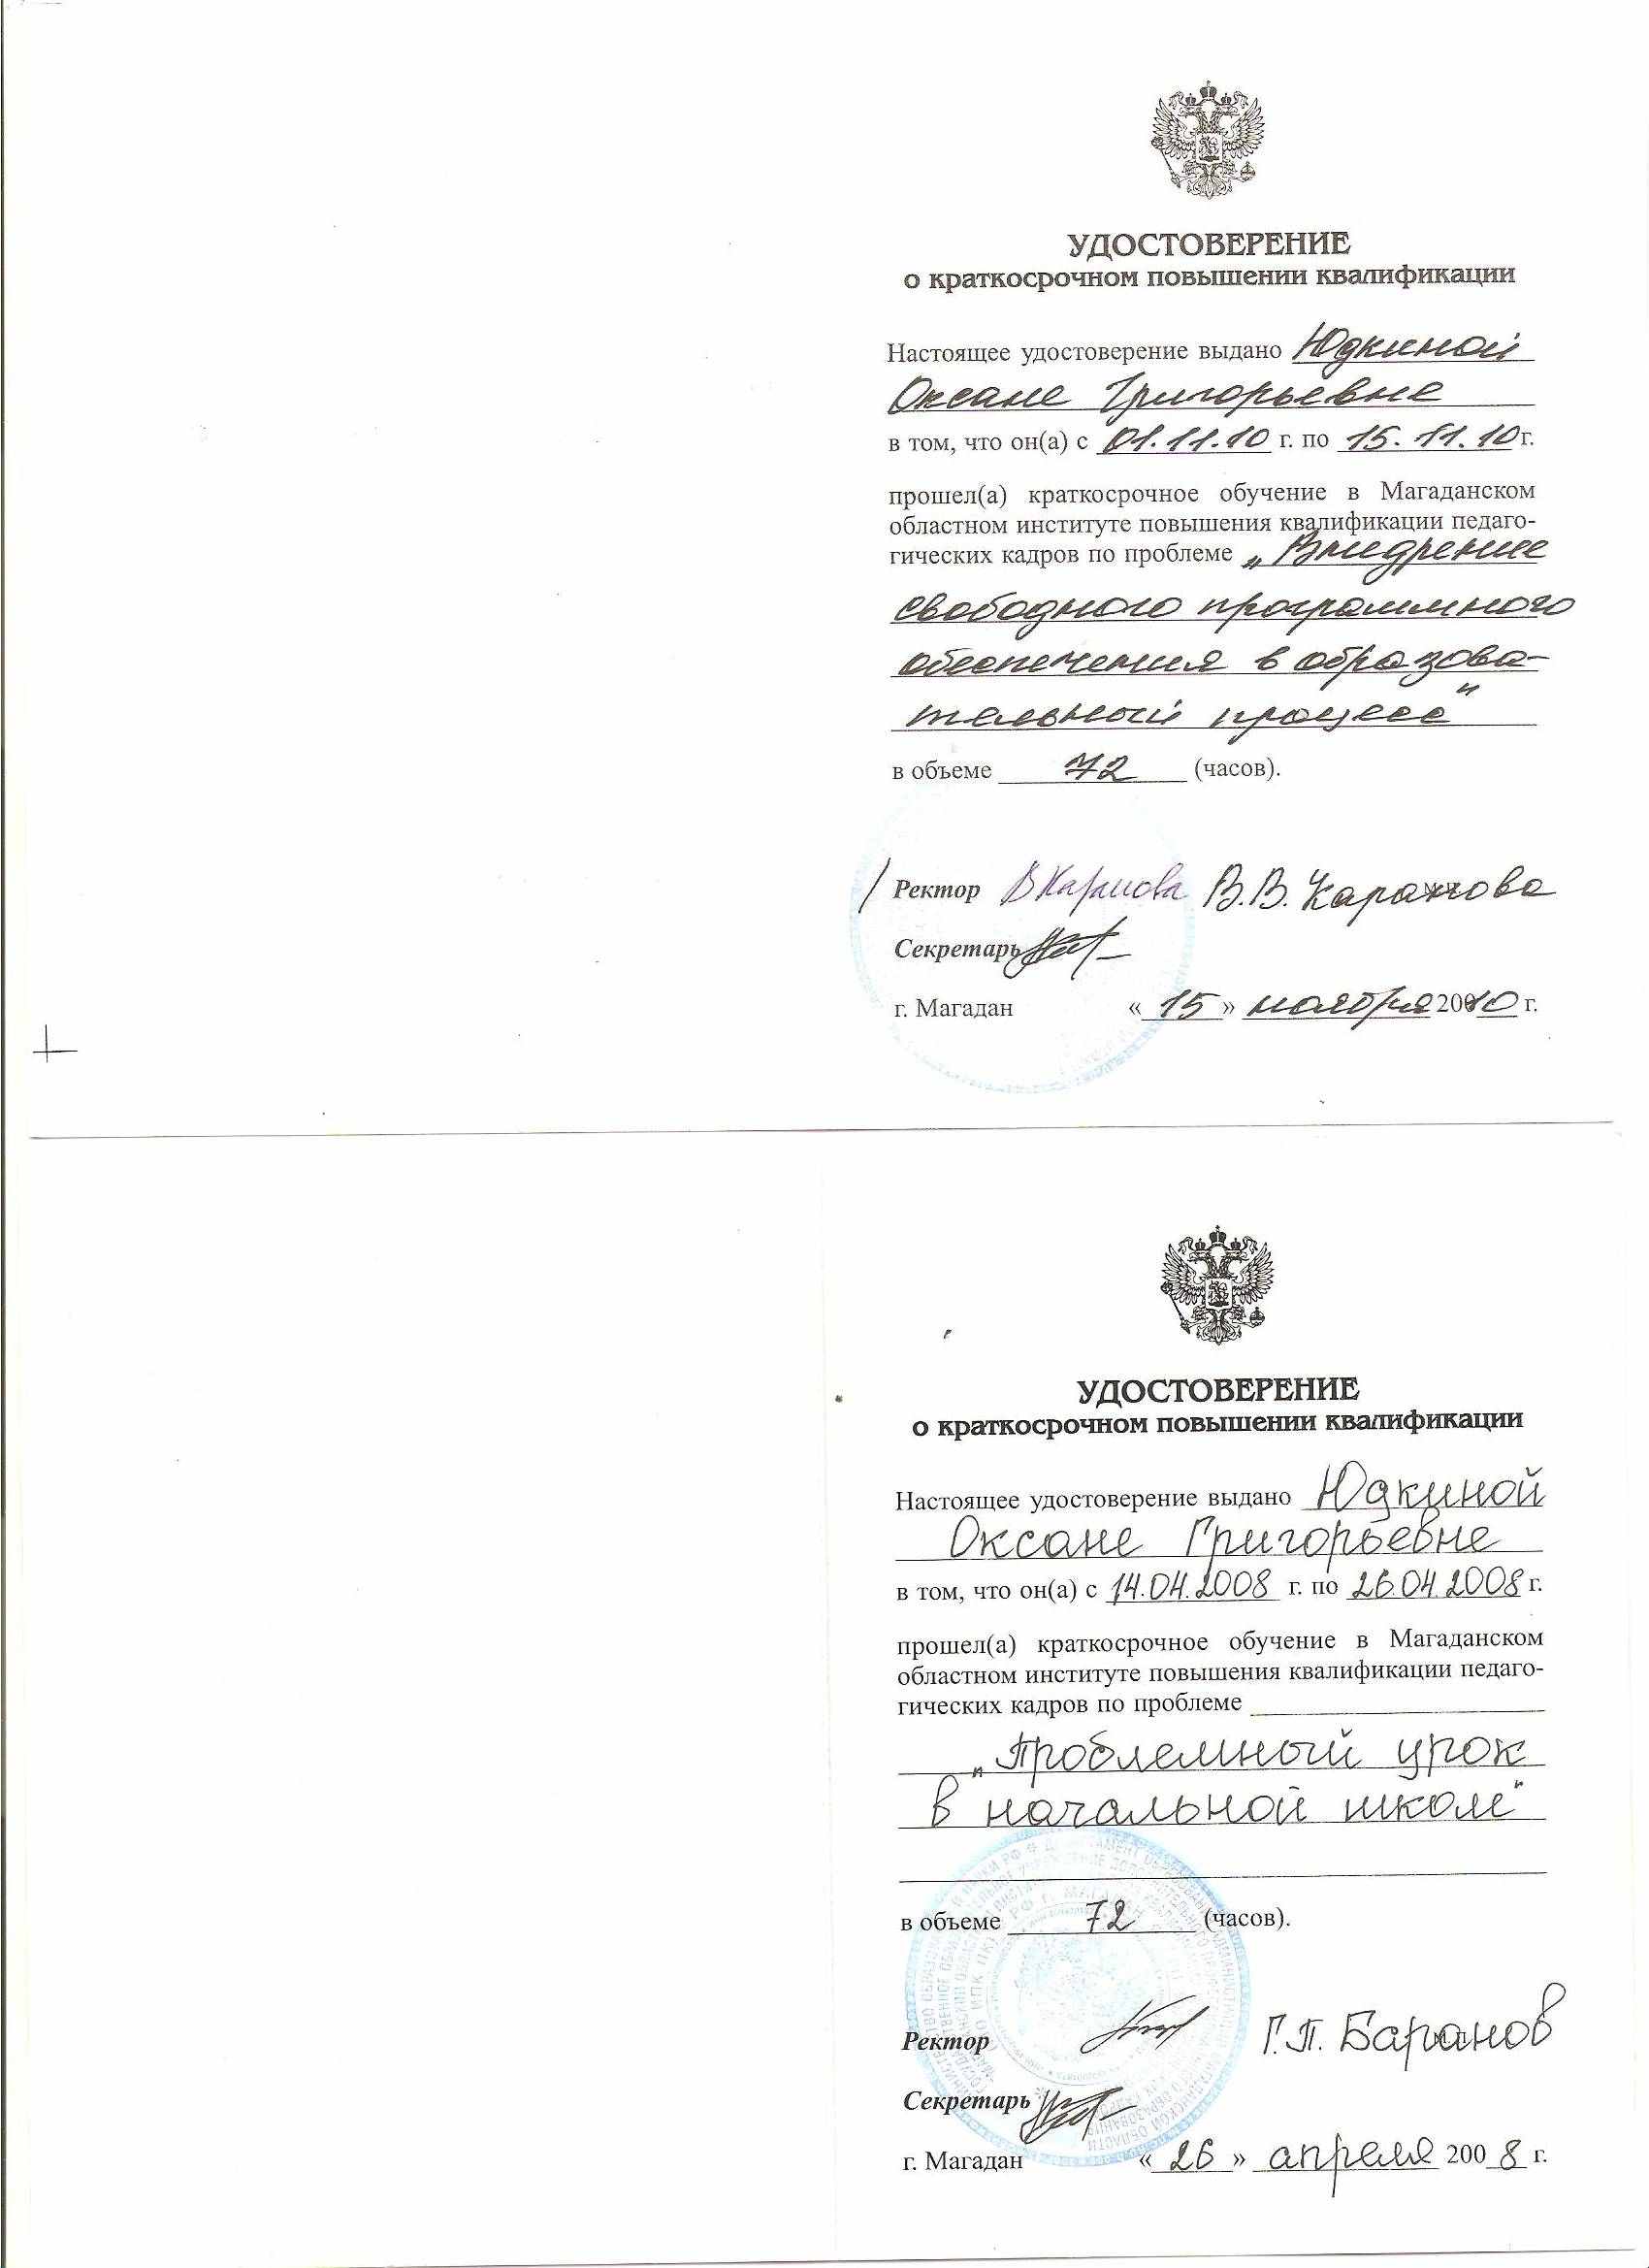 УДОСТОВЕРЕНИЕ
о краткосрочном повышении квалификации
Настоящее удостоверение выдано Юдкиной
Оксане Григорьевне
в том, что он(а) с 01.11.10 г. по 15.11.10 г.
прошел(а) краткосрочное обучение в Магаданском
областном институте повышения квалификации педаго-
гических кадров по проблеме „Внедрение
свободного программного
обеспечения в образова-
тельный процесс"
в объеме 72 (часов).
Ректор В.В.
Секретарь
г. Магадан «15» ноября 2010 г.
УДОСТОВЕРЕНИЕ
о краткосрочном повышении квалификации
Настоящее удостоверение выдано Юдкиной
Оксане Григорьевне
в том, что он(а) с 14.04.2008 г. по 26.04.2008 г.
прошел(а) краткосрочное обучение в Магаданском
областном институте повышения квалификации педаго-
гических кадров по проблеме
„Проблемный урок
в начальной школе"
в объеме 72 (часов).
Ректор Г.П. Баранов
Секретарь
г. Магадан «26» апреля 2008 г.